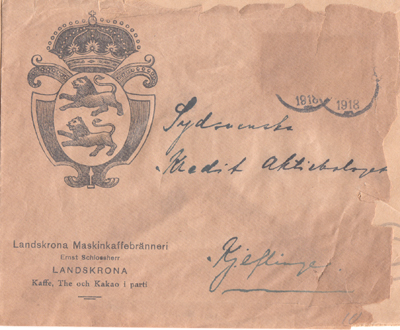 1918 1918
Sydsvenska
Kredit Aktiebolaget
Kjeflinge.
Landskrona Maskinkaffebränneri
Ernst Schlossherr.
LANDSKRONA
Kaffe, The och Kakao i parti